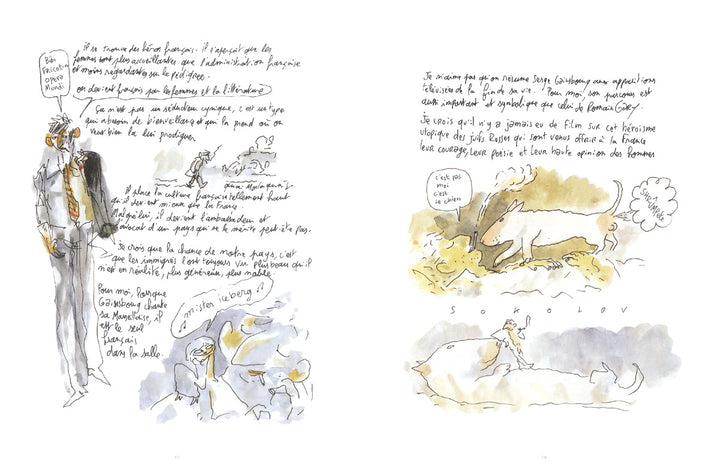 Bibi
Fricotin
Opera
Mundi
il se trouve des héros français. il s'aperçoit que les
femmes sont plus accueillantes que l'administration française
et moins regardantes sur le pedigree.
on devient français par les femmes et la littérature
ça n'est pas un séducteur cynique, c'est un type
qui a besoin de bienveillance et qui la prend où on
veut bien la lui prodiguer.
il place la culture française tellement haut
qu'il devient mieux que la France.
Malgré lui, il devient l'ambassadeur et
l'avocat d'un pays qui ne le mérite peut-être pas.
Je crois que la chance de notre pays, c'est
que les immigrés l'ont toujours vu plus beau qu'il
n'est en réalité, plus généreux, plus noble.
Pour moi, lorsque
Gainsbourg chante
sa Marseillaise, il
est le seul
français
dans la salle.
mister iceberg
Je n'aime pas qu'on résume Serge Gainsbourg aux apparitions
télévisées de la fin de sa vie. Pour moi, son parcours est
aussi important et symbolique que celui de Romain Gary.
Je crois qu'il n'y a jamais eu de film sur cet héroïsme
utopique des juifs Russes qui sont venus offrir à la France
leur courage, leur poésie et leur haute opinion des Hommes
c'est pas
moi
c'est
le chien
SOKOLOV